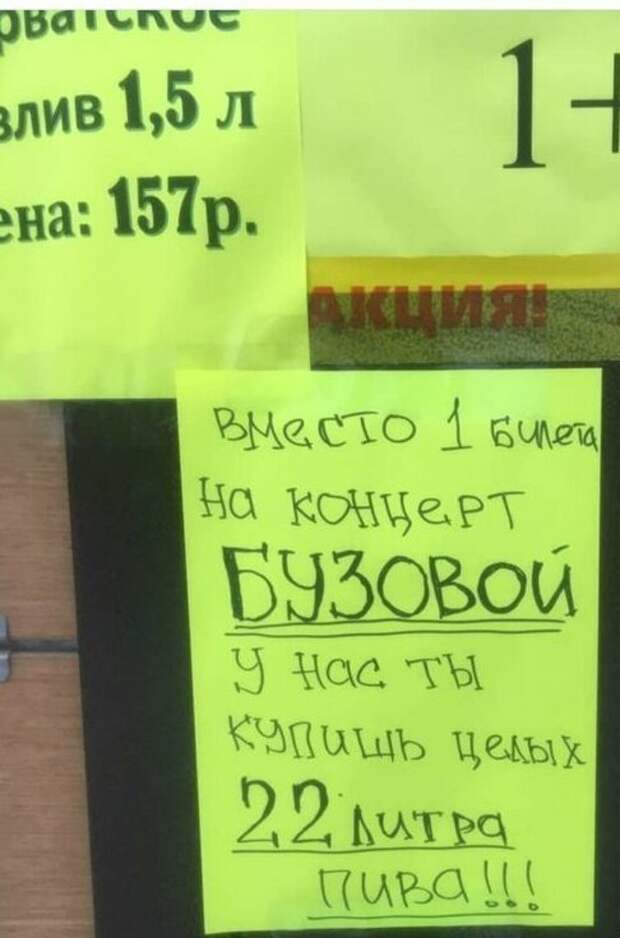 1,5 л
157р.
1+
АКЦИЯ!
Вместо 1 билета
на концерт
БУЗОВОЙ
у нас ты
купишь целых
22 литра
пива!!!